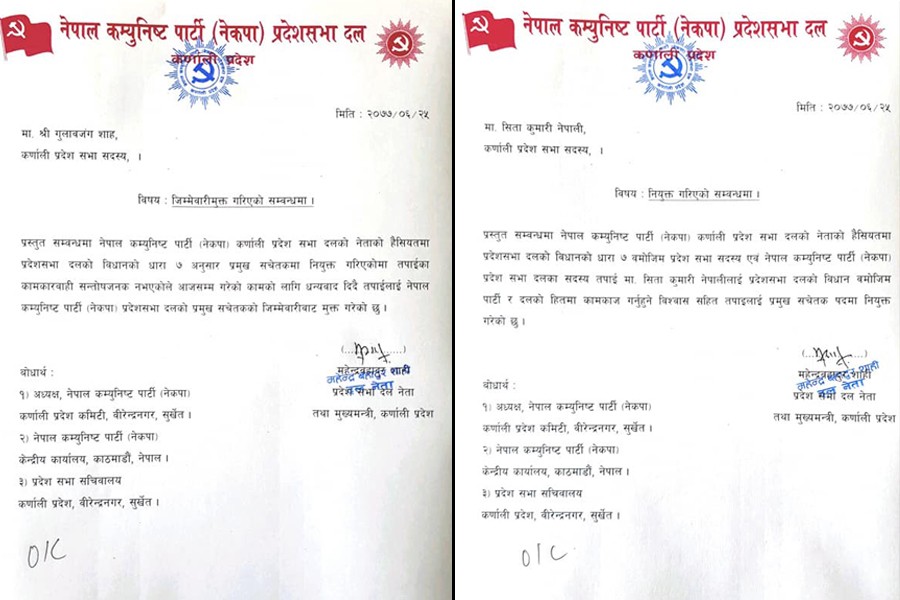 नेपाल कम्युनिष्ट पार्टी (नेकपा) प्रदेशसभा दल
कर्णाली प्रदेश
मिति : २०७७/०६/२५
मा. श्री गुलाबजंग शाह,
कर्णाली प्रदेश सभा सदस्य, ।
विषय : जिम्मेवारीमुक्त गरिएको सम्वन्धमा ।
प्रस्तुत सम्वन्धमा नेपाल कम्युनिष्ट पार्टी (नेकपा) कर्णाली प्रदेश सभा दलको नेताको हैसियतमा
प्रदेशसभा दलको विधानको धारा ७ अनुसार प्रमुख सचेतकमा नियुक्त गरिएकोमा तपाईका
कामकारवाही सन्तोषजनक नभएकोले आजसम्म गरेको कामको लागि धन्यवाद दिदै तपाईलाई नेपाल
कम्युनिष्ट पार्टी (नेकपा) प्रदेशसभा दलको प्रमुख सचेतकको जिम्मेवारीबाट मुक्त गरेको छु ।
महेन्द्रबहादुर शाही
महेन्द्र बहादुर शाही
दल नेता
प्रदेश सभा दल नेता
तथा मुख्यमन्त्री, कर्णाली प्रदेश
बोधार्थ :
१) अध्यक्ष, नेपाल कम्युनिष्ट पार्टी (नेकपा)
कर्णाली प्रदेश कमिटी, वीरेन्द्रनगर, सुर्खेत ।
२) नेपाल कम्युनिष्ट पार्टी (नेकपा)
केन्द्रीय कार्यालय, काठमाडौं, नेपाल ।
३) प्रदेश सभा सचिवालय
कर्णाली प्रदेश, वीरेन्द्रनगर, सुर्खेत ।
O/C
नेपाल कम्युनिष्ट पार्टी (नेकपा) प्रदेशसभा दल
कर्णाली प्रदेश
मिति : २०७७/०६/२५
मा. सिता कुमारी नेपाली,
कर्णाली प्रदेश सभा सदस्य, ।
विषय : नियुक्त गरिएको सम्वन्धमा ।
प्रस्तुत सम्वन्धमा नेपाल कम्युनिष्ट पार्टी (नेकपा) कर्णाली प्रदेश सभा दलको नेताको हैसियतमा
प्रदेशसभा दलको विधानको धारा ७ बमोजिम प्रदेश सभा सदस्य एवं नेपाल कम्युनिष्ट पार्टी (नेकपा)
प्रदेश सभा दलका सदस्य तपाई मा. सिता कुमारी नेपालीलाई प्रदेशसभा दलको विधान बमोजिम
पार्टी र दलको हितमा कामकाज गर्नुहुने विश्वास सहित तपाइलाई प्रमुख सचेतक पदमा नियुक्त
गरेको छु ।
महेन्द्रबहादुर शाही
महेन्द्र बहादुर शाही
दल नेता
प्रदेश सभा दल नेता
तथा मुख्यमन्त्री, कर्णाली प्रदेश
बोधार्थ :
१) अध्यक्ष, नेपाल कम्युनिष्ट पार्टी (नेकपा)
कर्णाली प्रदेश कमिटी, वीरेन्द्रनगर, सुर्खेत ।
२) नेपाल कम्युनिष्ट पार्टी (नेकपा)
केन्द्रीय कार्यालय, काठमाडौं, नेपाल ।
३) प्रदेश सभा सचिवालय
कर्णाली प्रदेश, वीरेन्द्रनगर, सुर्खेत ।
O/C